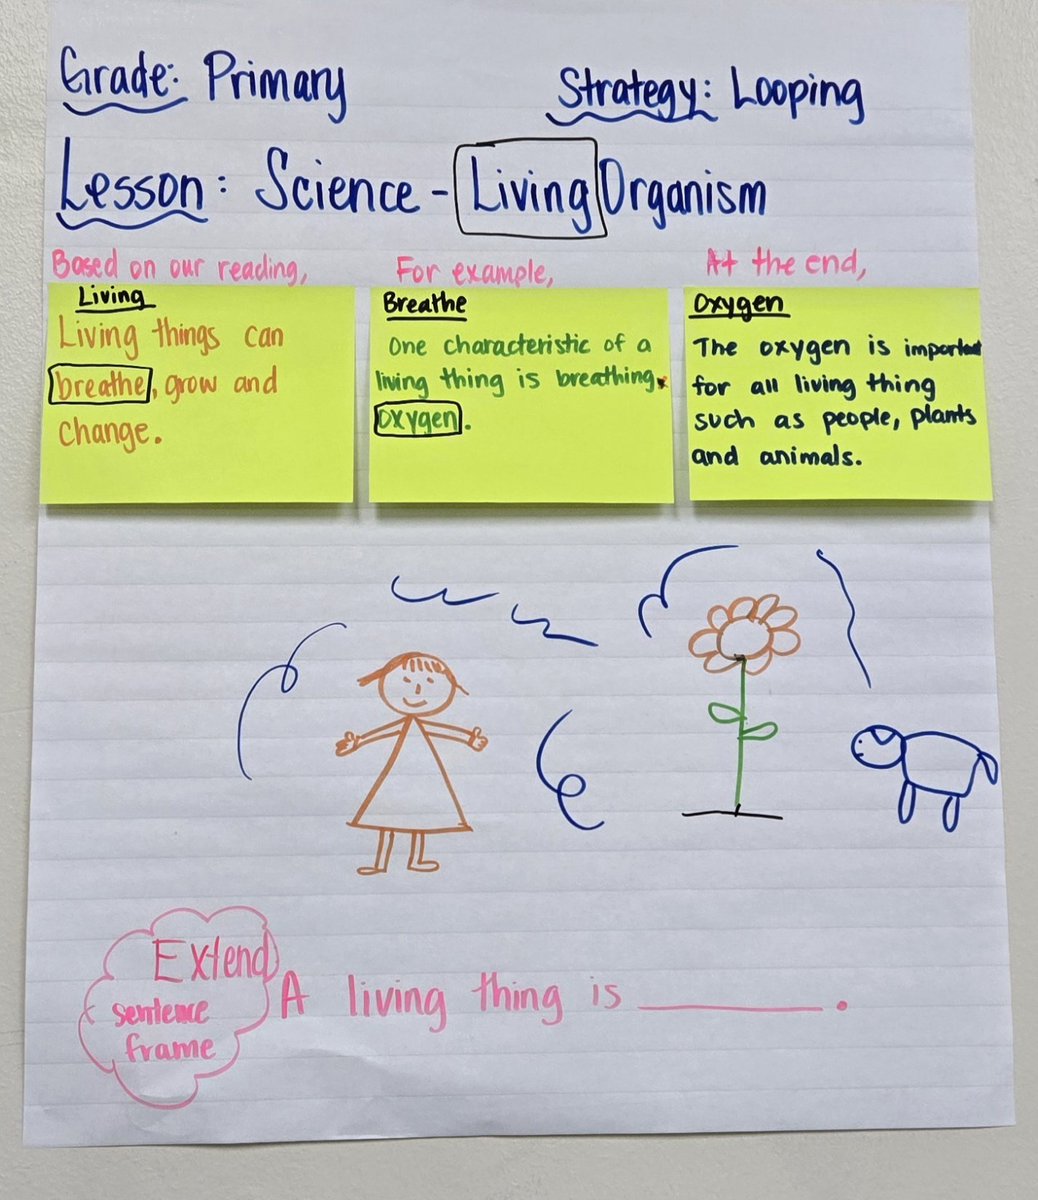 Grade: Primary
Strategy: Looping
Lesson: Science - Living Organism
Based on our reading,
Living
Living things can
breathe, grow and
change.
For example,
Breathe
One characteristic of a
living thing is breathing.
oxygen.
At the end,
Oxygen
The oxygen is important
for all living thing
such as people, plants
and animals.
Extend
sentence
frame
A living thing is ________.